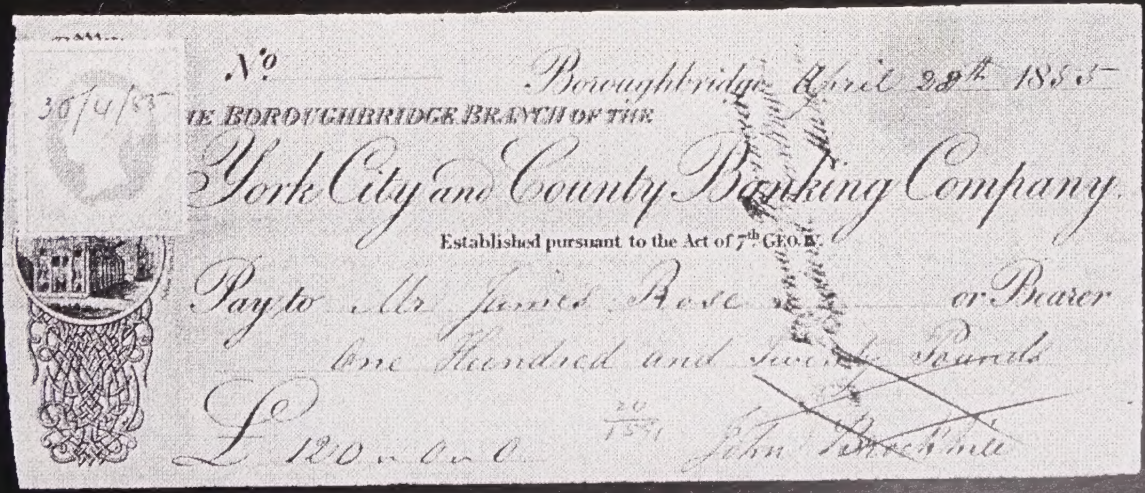 No
Boroughbridge April 28th 1855
30/4/55
HE BOROUGHBRIDGE BRANCH OF THE
York City and County Banking Company.
Established pursuant to the Act of 7th GEO. IV.
Pay to Mr James Rose or Bearer
One Hundred and Twenty Pounds
£ 120 " 0 " 0
20
John